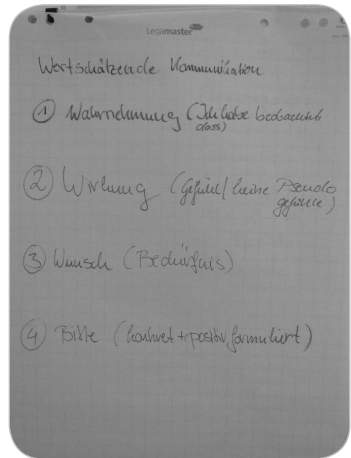 Legamaster
Wertschätzende Kommunikation
① Wahrnehmung (Ich habe beobachtet
dass)
② Wirkung (Gefühl/keine Pseudo
gefühle)
③ Wunsch (Bedürfnis)
④ Bitte (konkret + positiv formuliert)